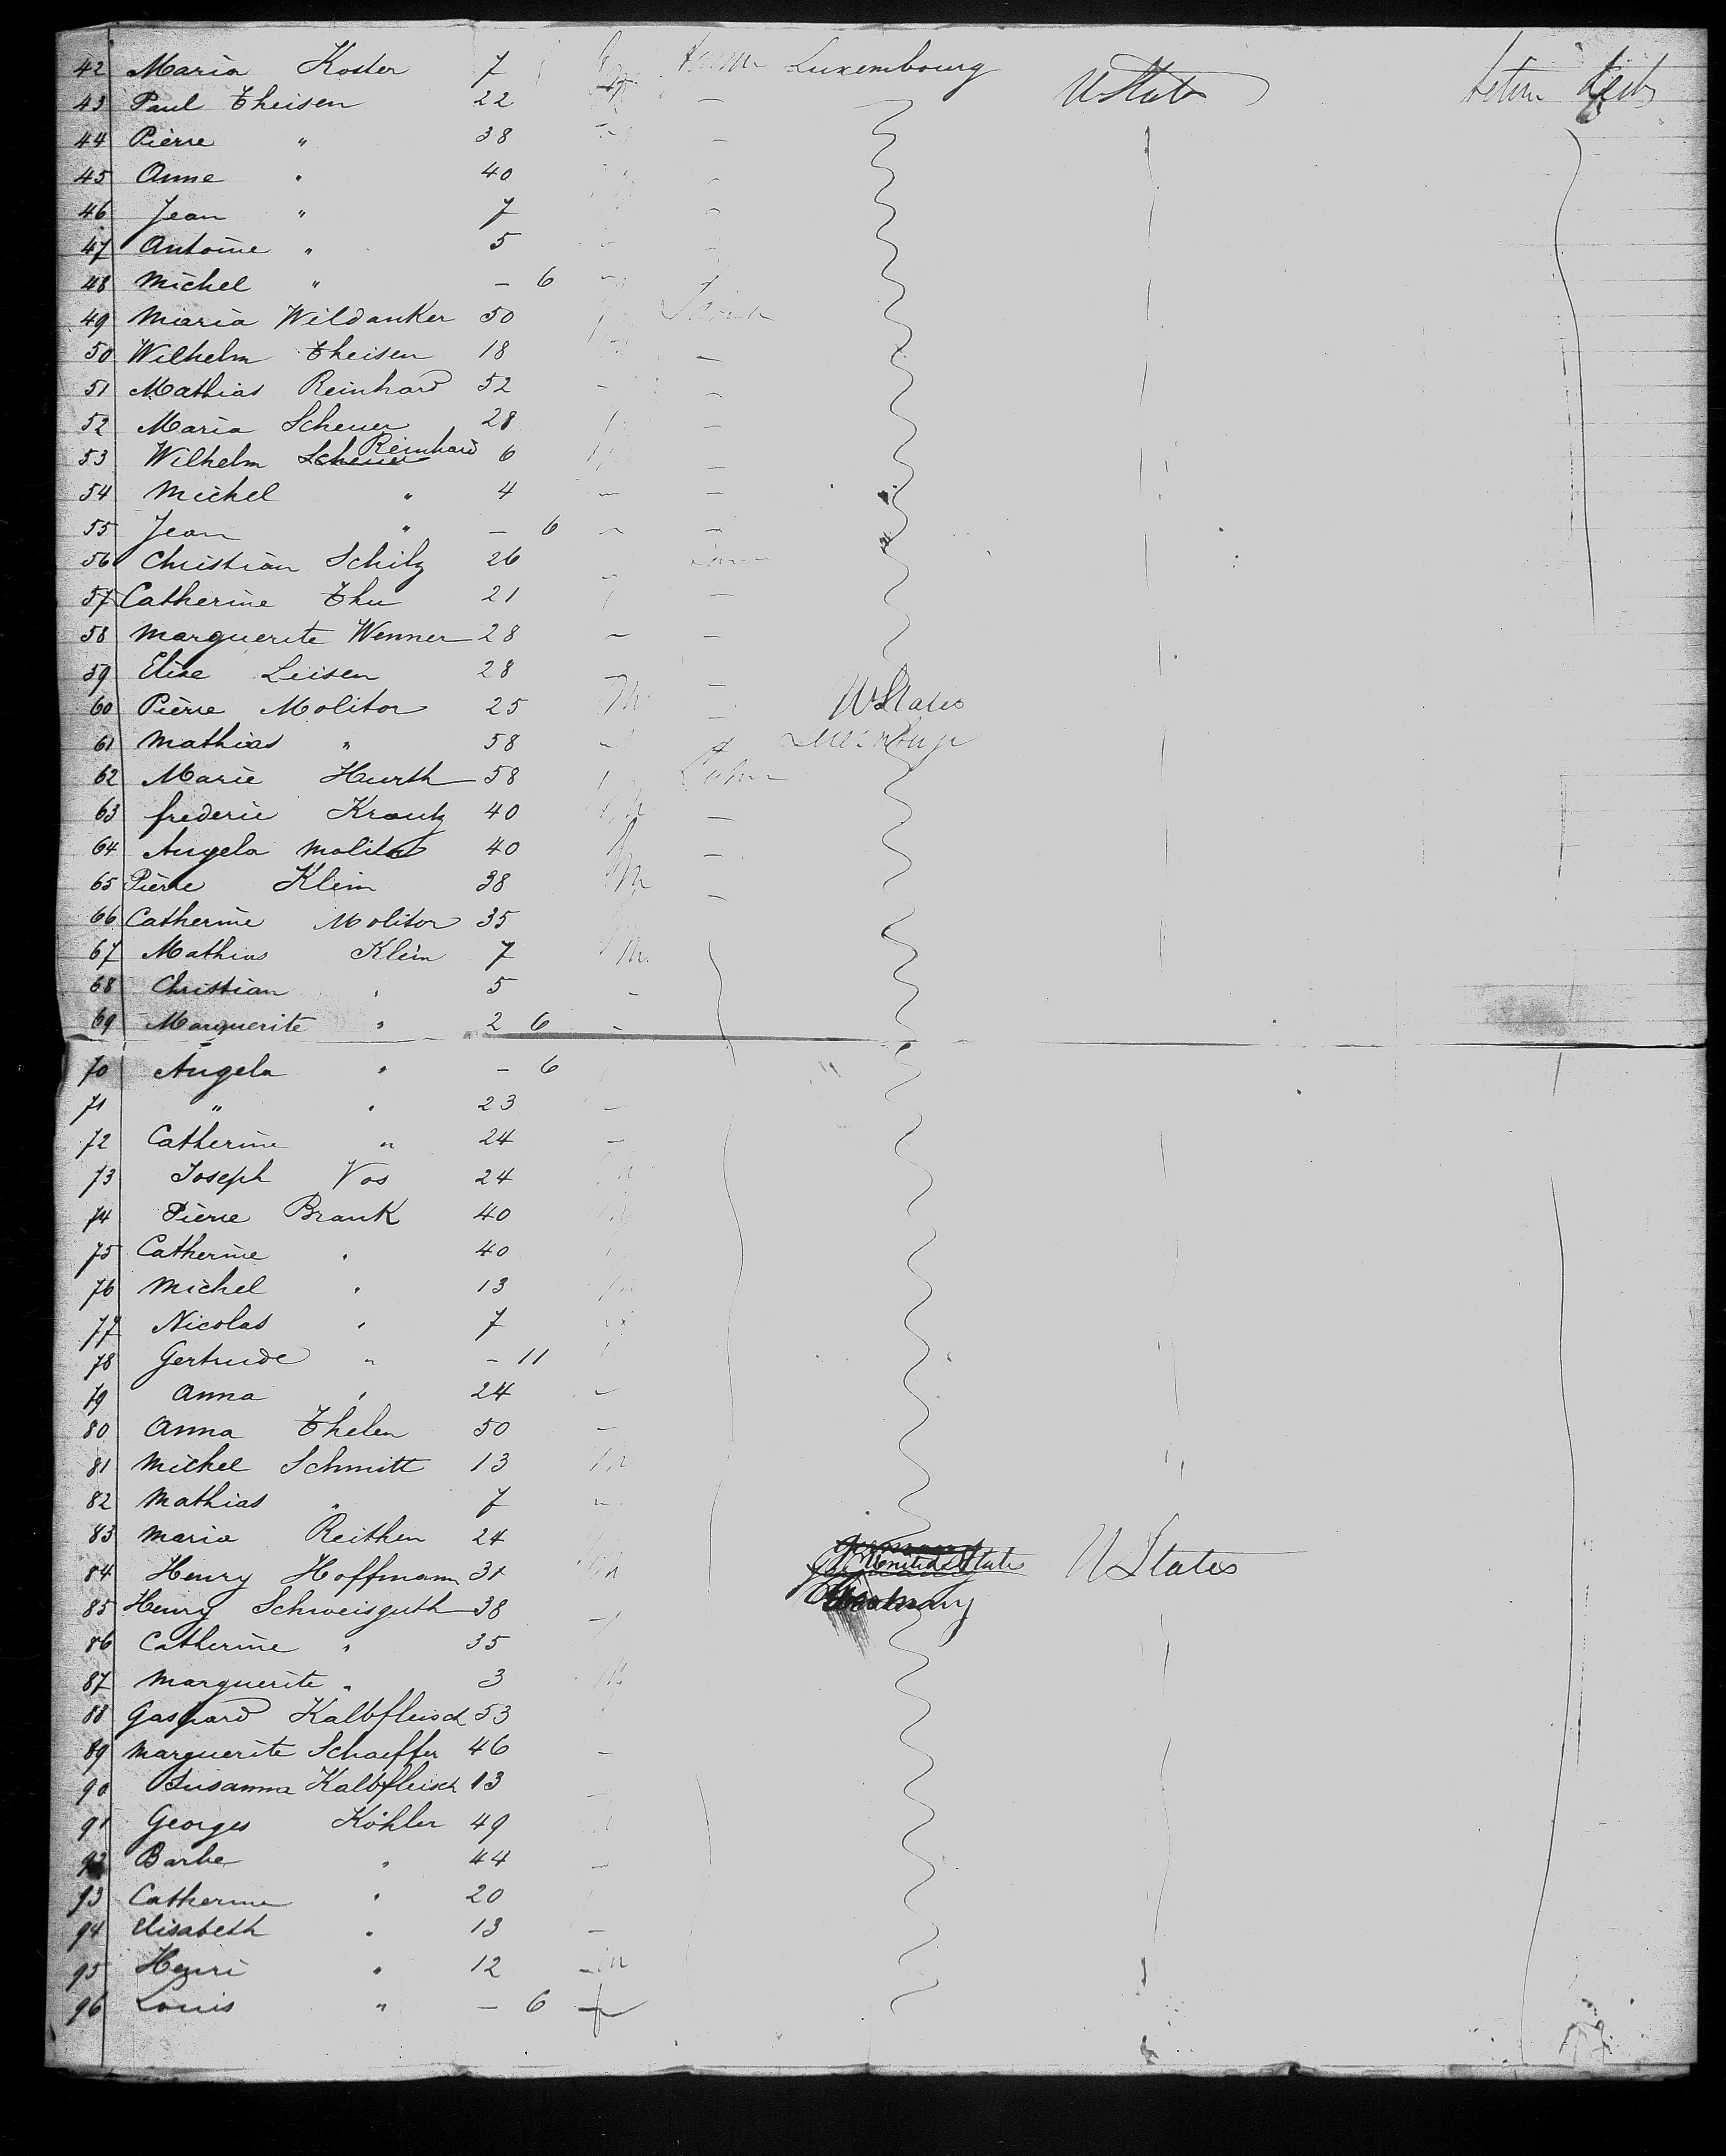 42 Maria Koster 7 Luxembourg U States
43 Paul Theisen 22 —
44 Pierre " 38 —
45 Anne " 40
46 Jean " 7
47 Antoine " 5
48 Michel " — 6
49 Maria Wildanker 50
50 Wilhelm Theisen 18 —
51 Mathias Reinhard 52 —
52 Maria Scheuer 28 —
53 Wilhelm Scheuer Reinhard 6 —
54 Michel " 4 — —
55 Jean " — 6 — —
56 Christian Schilz 26
57 Catherine Thu 21 —
58 Marguerite Wenner 28 — —
59 Elise Leisen 28 —
60 Pierre Molitor 25 — U States
61 Mathias " 58
62 Marie Hurth 58
63 frederic Krantz 40 —
64 Angela Molitor 40 —
65 Pierre Klein 38 —
66 Catherine Molitor 35
67 Mathias Klein 7
68 Christian " 5 —
69 Marguerite " 2 6 —
70 Angela " — 6
71 " " 23 —
72 Catherine " 24 —
73 Joseph Vos 24
74 Pierre Brank 40
75 Catherine " 40
76 Michel " 13
77 Nicolas " 7
78 Gertrude " — 11
79 Anna " 24 —
80 Anna Thelen 50 —
81 Michel Schmitt 13
82 Mathias " 7
83 Maria Reithen 24
84 Henry Hoffmann 31 United States U States
85 Henry Schweisguth 38 Germany
86 Catherine " 35
87 Marguerite " 3
88 Gaspard Kalbfleisch 53
89 Marguerite Schaeffer 46 —
90 Susanna Kalbfleisch 13
91 Georges Köhler 49
92 Barbe " 44
93 Catherine " 20
94 Elisabeth " 13 —
95 Henri " 12
96 Louis " — 6